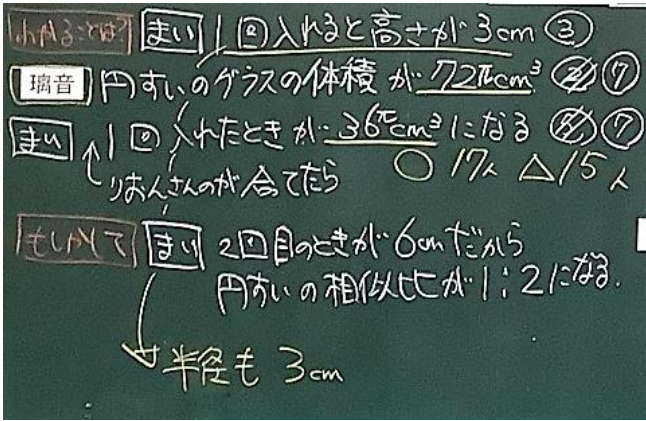 わかることは? まい 1回入れると高さが3cm ③
璃音 円すいのグラスの体積が72πcm³ ⑦
まい 1回入れたときが36πcm³になる ⑦
↑りおんさんのが合てたら ○17人 △15人
もしかして まい 2回目のときが6cmだから
円すいの相似比が1:2になる.
半径も3cm